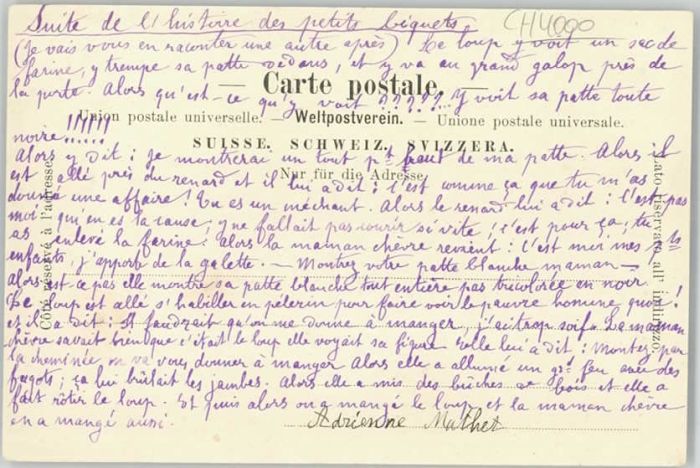 Suite de l'histoire des petits biquets.
CH4000
(Je vais vous en raconter une autre après) Le loup y voit un sac de
farine, y trempe sa patte dedans, et y va au grand galop près de
— Carte postale. —
la porte. Alors qu'est-ce qu'y voit ????? Y voit sa patte toute
Union postale universelle. — Weltpostverein. — Unione postale universale.
noire !!!!!!
SUISSE. SCHWEIZ. SVIZZERA.
Alors y dit : je montrerai un tout pt bout de ma patte. Alors il
Nur für die Adresse.
est allé près du renard et il lui a dit : c'est comme ça que tu m'as
donné une affaire ! Tu es un méchant. Alors le renard lui a dit : C'est pas
moi qui en es la cause, y ne fallait pas courir si vite, c'est pour ça ; tu
as enlevé la farine. Alors la maman chèvre revient : C'est moi mes pts
enfants, j'apporte de la galette. — Montrez votre patte blanche maman —
Alors est ce pas elle montre sa patte blanche tout entière pas tricolorée en noir
Le loup est allé s'habiller en pélerin pour faire voir le pauvre homme, quoi !
et il a dit : Il faudrait qu'on me donne à manger, j'ai trop soif. La maman
chèvre savait bien que c'était le loup elle voyait sa figure. Elle lui a dit : Montez par
la cheminée on va vous donner à manger Alors elle a allumé un gd feu avec des
fagots ; ça lui brûlait les jambes. Alors elle a mis des bûches de bois et elle a
fait rôtir le loup. Et puis alors on a mangé le loup et la maman chèvre
en a mangé aussi.
Adrienne Mathez
Côté réservé à l'adresse.
Lato riservato all' indirizzo.